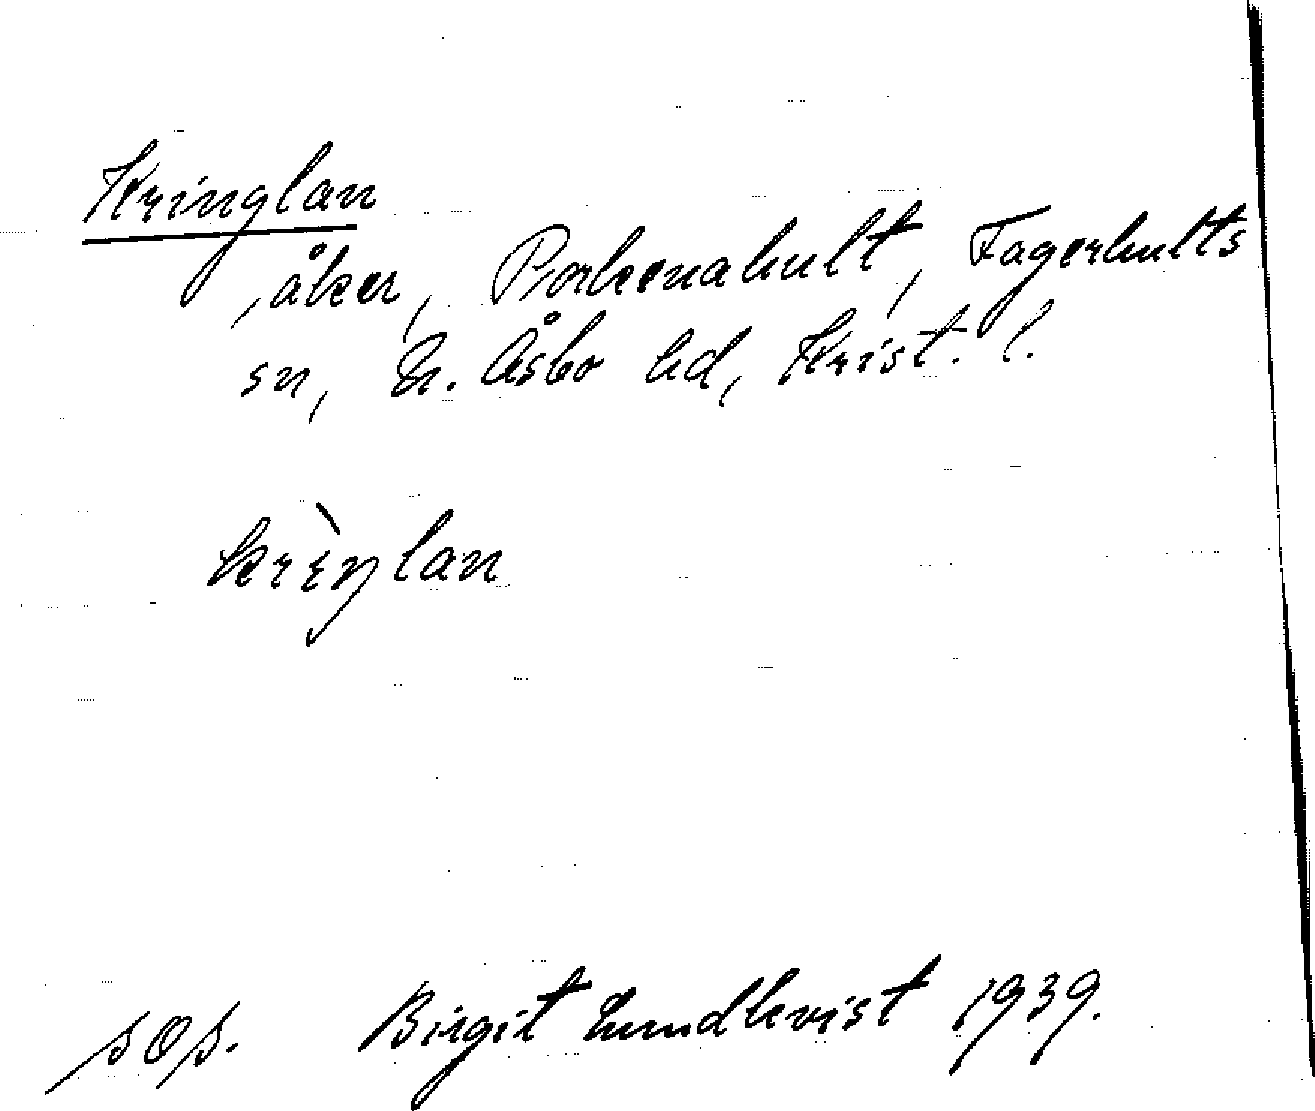 Kringlan
, åker, Porkenahult, Fagerhults
sn, N. Åsbo hd, Krist. l.
krɪ̀ŋlan
sOs. Birgit Lundkvist 1939.